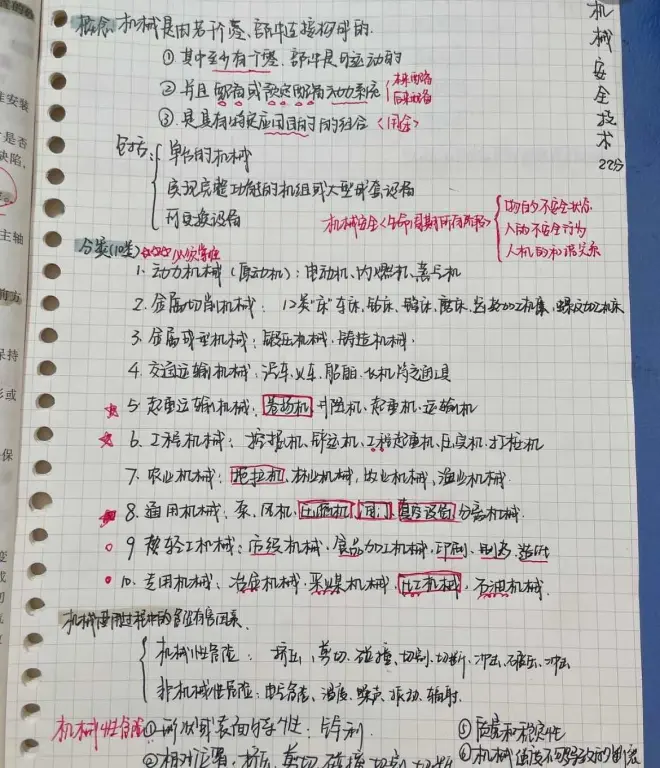 机械安全技术
22分
概念 机械是由若干零、部件连接构成的.
① 其中至少有个零、部件是可运动的
② 并且配备或预定配备动力系统 { 本来配备 后来配备
③ 是具有特定应用目的的组合 〈用途〉
包括: { 单台的机械
实现完整功能的机组或大型成套设备
可更换设备
机械安全〈生命周期所有阶段〉 { 物的不安全状态 人的不安全行为 人机的和谐关系
分类(10类)
1. 动力机械(原动机): 电动机、内燃机、蒸气机
2. 金属切削机械: 12类"床" 车床、钻床、镗床、磨床、齿轮加工机床、螺纹加工机床
3. 金属成型机械: 锻压机械、铸造机械.
4. 交通运输机械: 汽车、火车、船舶、飞机等交通工具
5 起重运输机械: 卷扬机 升降机、起重机、运输机
6. 工程机械: 挖掘机、铲运机、工程起重机、压实机、打桩机
7. 农业机械: 拖拉机、林业机械、牧业机械、渔业机械.
8. 通用机械: 泵、风机、压缩机、阀门、真空设备 分离机械.
9 轻工机械: 纺织机械、食品加工机械、印刷、制药、造纸
10. 专用机械: 冶金机械、采煤机械、化工机械、石油机械.
机械使用过程中的危险有害因素.
{ 机械性危险: 挤压、剪切、碰撞、切割、切断、冲击
非机械性危险: 电气危险、温度、噪声、振动、辐射.
机械性危险 ① 形状或表面特性: 锋利
⑤ 质量和稳定性
② 相对位置: 挤压、剪切、碰撞
⑥ 机械强度不够导致的